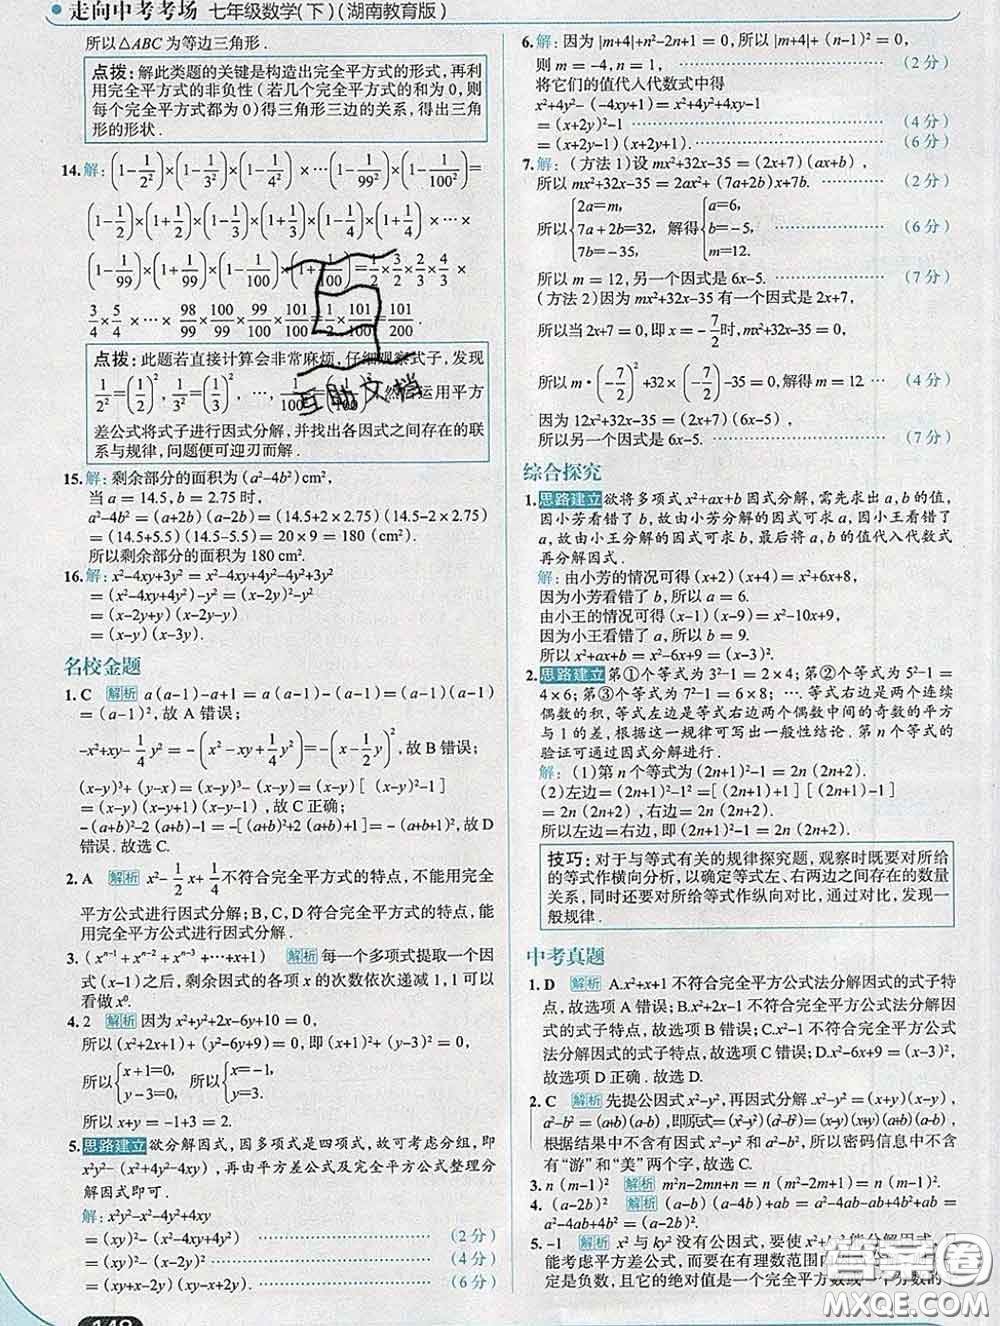 走向中考考场 七年级数学(下)(湖南教育版)
所以△ABC为等边三角形.
点拨:解此类题的关键是构造出完全平方式的形式,再利
用完全平方式的非负性(若几个完全平方式的和为0,则
每个完全平方式都为0)得三角形三边的关系,得出三角
形的形状.
14.解:(1-1/2²)×(1-1/3²)×(1-1/4²)×…×(1-1/99²)×(1-1/100²)=
(1-1/2)×(1+1/2)×(1-1/3)×(1+1/3)×(1-1/4)×(1+1/4)×…×
(1-1/99)×(1+1/99)×(1-1/100)×(1+1/100)=1/2×3/2×2/3×4/3×
3/4×5/4×…×98/99×100/99×99/100×101/100=1/2×101/100=101/200.
点拨:此题若直接计算会非常麻烦,仔细观察式子,发现
1/2²=(1/2)²,1/3²=(1/3)²,…,1/100²=(1/100)²,然后运用平方
差公式将式子进行因式分解,并找出各因式之间存在的联
系与规律,问题便可迎刃而解.
互助文档
15.解:剩余部分的面积为(a²-4b²)cm²,
当a=14.5,b=2.75时,
a²-4b²=(a+2b)(a-2b)=(14.5+2×2.75)(14.5-2×2.75)
=(14.5+5.5)(14.5-5.5)=20×9=180(cm²).
所以剩余部分的面积为180 cm².
16.解:x²-4xy+3y²=x²-4xy+4y²-4y²+3y²
=(x²-4xy+4y²)-y²=(x-2y)²-y²
=(x-2y+y)(x-2y-y)
=(x-y)(x-3y).
名校金题
1.C 解析 a(a-1)-a+1=a(a-1)-(a-1)=(a-1)(a-1)
=(a-1)²,故A错误;
-x²+xy-1/4y²=-(x²-xy+1/4y²)=-(x-1/2y)²,故B错误;
(x-y)³+(y-x)=(x-y)³-(x-y)=(x-y)[(x-y)²-1]
=(x-y)(x-y+1)(x-y-1),故C正确;
-(a+b)²-2(a+b)-1=-[(a+b)²+2(a+b)+1]=-(a+b+1)²,故D
错误.故选C.
2.A 解析 x²-1/2x+1/4不符合完全平方式的特点,不能用完全
平方公式进行因式分解;B,C,D符合完全平方式的特点,能
用完全平方公式进行因式分解.
3.(xⁿ⁻¹+xⁿ⁻²+xⁿ⁻³+…+x+1) 解析 每一个多项式提取一个因
式(x-1)之后,剩余因式的各项x的次数依次递减1,1可以
看做x⁰.
4.2 解析 因为x²+y²+2x-6y+10=0,
所以(x²+2x+1)+(y²-6y+9)=0,即(x+1)²+(y-3)²=0.
所以{x+1=0, y-3=0. 所以{x=-1, y=3.
所以x+y=-1+3=2.
5.思路建立欲分解因式,因多项式是四项式,故可考虑分组,即
x²y²-(x²+4y²-4xy),再由平方差公式及完全平方公式整理分
解因式即可.
解:x²y²-x²-4y²+4xy
=(xy)²-(x²-4xy+4y²)(2分)
=(xy)²-(x-2y)²(4分)
=(xy+x-2y)(xy-x+2y).(6分)
148
6.解:因为|m+4|+n²-2n+1=0,所以|m+4|+(n-1)²=0,
则m=-4,n=1,(2分)
将它们的值代入代数式中得
x²+4y²-(-4xy+1)=x²+4y²+4xy-1
=(x+2y)²-1(4分)
=(x+2y+1)(x+2y-1).(6分)
7.解:(方法1)设mx²+32x-35=(2x+7)(ax+b),
所以mx²+32x-35=2ax²+(7a+2b)x+7b.(2分)
所以{2a=m, 7a+2b=32, 7b=-35, 解得{a=6, b=-5, m=12.(6分)
所以m=12,另一个因式是6x-5.(7分)
(方法2)因为mx²+32x-35有一个因式是2x+7,
所以当2x+7=0,即x=-7/2时,mx²+32x-35=0,
所以m·(-7/2)²+32×(-7/2)-35=0,解得m=12(4分)
因为12x²+32x-35=(2x+7)(6x-5),
所以另一个因式是6x-5.(7分)
综合探究
1.思路建立欲将多项式x²+ax+b因式分解,需先求出a,b的值,
因小芳看错了b,故由小芳分解的因式可求a,因小王看错了
a,故由小王分解的因式可求b,最后将a,b的值代入代数式
再分解因式.
解:由小芳的情况可得(x+2)(x+4)=x²+6x+8,
因为小芳看错了b,所以a=6.
由小王的情况可得(x-1)(x-9)=x²-10x+9,
因为小王看错了a,所以b=9.
所以x²+ax+b=x²+6x+9=(x+3)².
2.思路建立第①个等式为3²-1=2×4;第②个等式为5²-1=
4×6;第③个等式为7²-1=6×8;….等式右边是两个连续
偶数的积,等式左边是等式右边两个偶数中间的奇数的平方
与1的差,根据这一规律可写出一般性结论.第n个等式的
验证可通过因式分解进行.
解:(1)第n个等式为(2n+1)²-1=2n(2n+2).
(2)左边=(2n+1)²-1²=[(2n+1)+1][(2n+1)-1]
=2n(2n+2),右边=2n(2n+2).
所以左边=右边,即(2n+1)²-1=2n(2n+2).
技巧:对于与等式有关的规律探究题,观察时既要对所给
的等式作横向分析,以确定等式左、右两边之间存在的数量
关系,同时还要对所给等式作纵向对比,通过对比,发现一
般规律.
中考真题
1.D 解析 A.x²+x+1不符合完全平方公式法分解因式的式子特
点,故选项A错误;B.x²+2x-1不符合完全平方公式法分解因
式的式子特点,故选项B错误;C.x²-1不符合完全平方公式
法分解因式的式子特点,故选项C错误;D.x²-6x+9=(x-3)²,
故选项D正确.故选D.
2.C 解析 先提公因式x²-y²,再因式分解.x²-y²=(x+y)(x-y),
a²-b²=(a+b)(a-b),即原式=(x²-y²)(a²-b²)=(x+y)(x-y)(a+b)(a-b),
根据结果中不含有因式x²-y²和a²-b²,所以密码信息中不含
有“游”和“美”两个字,故选C.
3.n(m-1)² 解析 m²n-2mn+n=n(m²-2m+1)=n(m-1)².
4.(a-2b)² 解析 (a-b)(a-4b)+ab=a²-4ab-ab+4b²+ab=
a²-4ab+4b²=(a-2b)².
5.-1 解析 x²与ky²没有公因式,要使x²+ky²能分解因式,
能考虑平方差公式,而要在有理数范围内
定是负数,且它的绝对值是一个完全平方数或一个分数的
答案圈
MXQE.COM